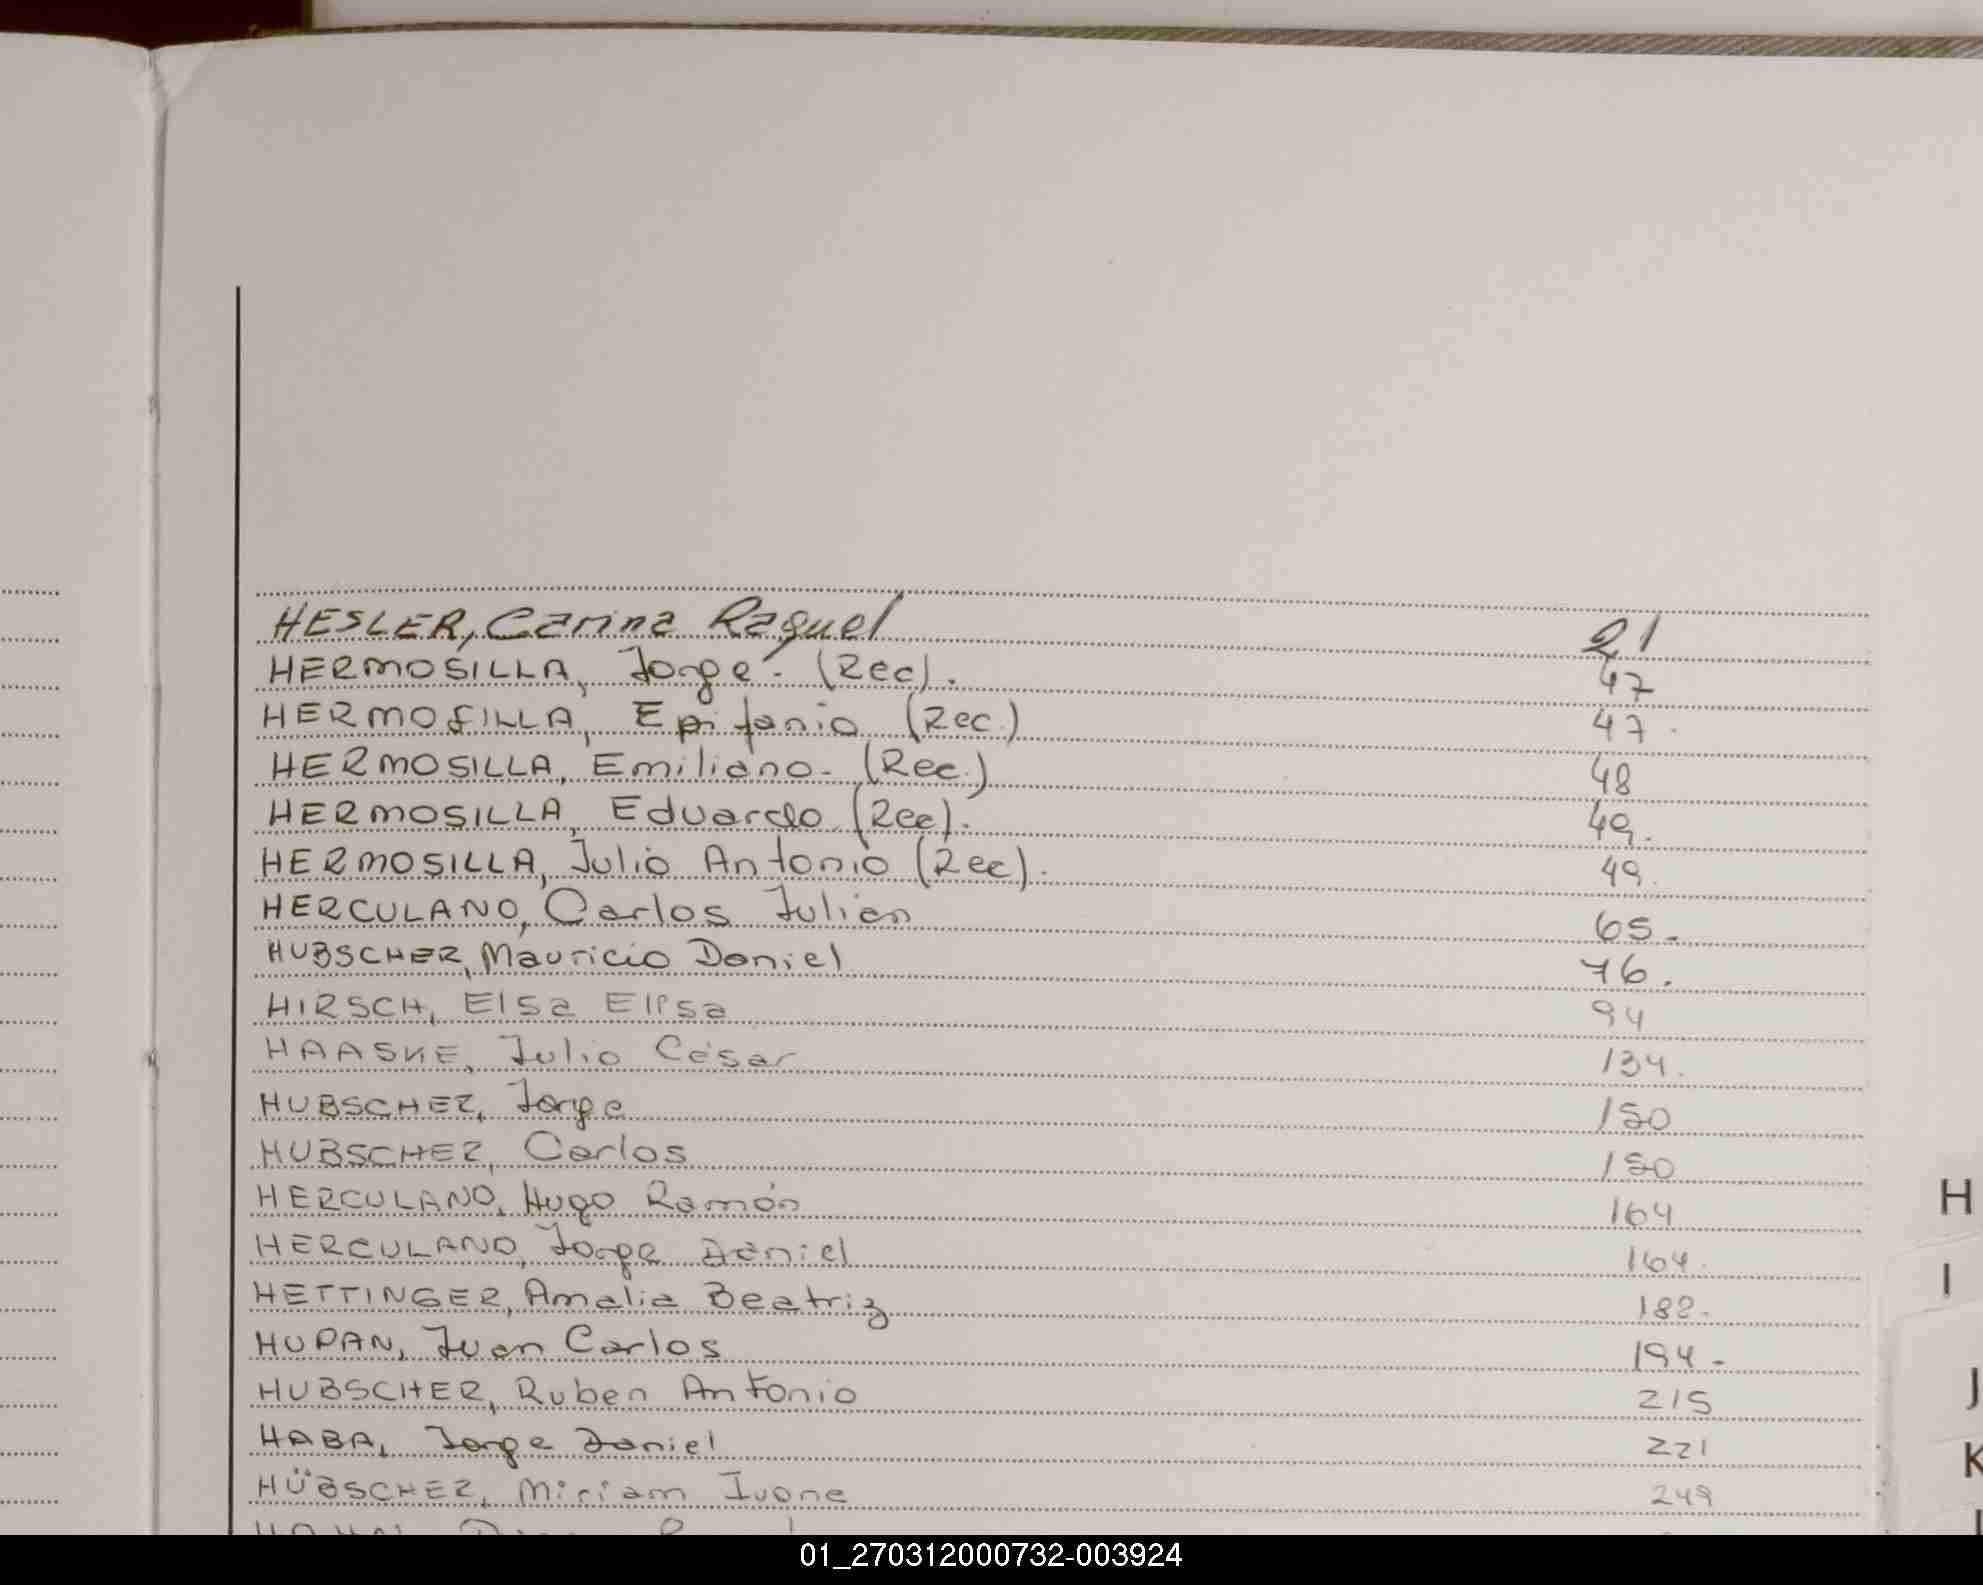 HESLER, Carina Raquel 21
HERMOSILLA, Jorge - (Rec). 47
HERMOSILLA, Epifanio (Rec.) 47.
HERMOSILLA, Emiliano - (Rec.) 48
HERMOSILLA, Eduardo (Rec). 49.
HERMOSILLA, Julio Antonio (Rec). 49.
HERCULANO, Carlos Julian 65.
HUBSCHER, Mauricio Daniel 76.
HIRSCH, Elsa Elisa 94
HAASKE, Julio César 134.
HUBSCHER, Jorge 150
HUBSCHER, Carlos 150
HERCULANO, Hugo Ramón 164
H
HERCULANO, Jorge Daniel 164.
I
HETTINGER, Amalia Beatriz 188.
HUPAN, Juan Carlos 194-
J
HUBSCHER, Ruben Antonio 215
HABA, Jorge Daniel 221
K
HÜBSCHER, Miriam Ivone 249
01_270312000732-003924